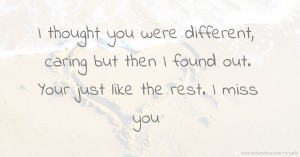 I thought you were different,
caring but then I found out.
Your just like the rest. I miss
you